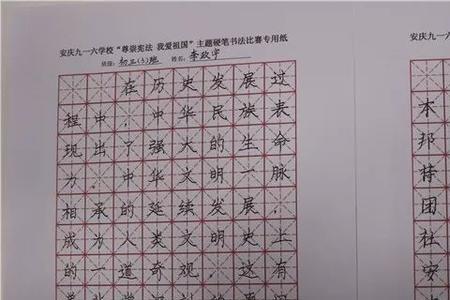 安庆九一六学校“尊崇宪法 我爱祖国”主题硬笔书法比赛专用纸
班级：初三(3)班 姓名：李政宇
在历史发展过
程中，中华民族表
现出了强大的生命
力，中华文明一脉
相承的延续发展，
成为人类文明史上
的一道奇观。这有
本
邦
持
团
社
安